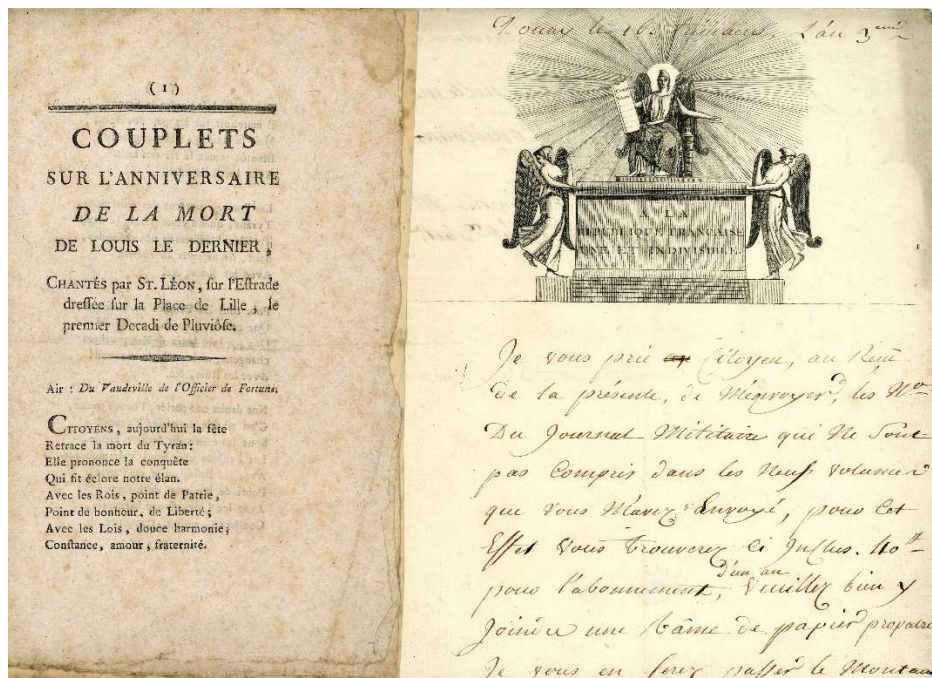 (1)
COUPLETS
SUR L'ANNIVERSAIRE
DE LA MORT
DE LOUIS LE DERNIER,
CHANTÉS par ST. LÉON, sur l'Estrade
dressée sur la Place de Lille, le
premier Decadi de Pluviôse.
Air : Du Vaudeville de l'Officier de Fortune.
CITOYENS, aujourd'hui la fête
Retrace la mort du Tyran:
Elle prononce la conquête
Qui fit éclore notre élan.
Avec les Rois, point de Patrie,
Point de bonheur, de Liberté;
Avec les Lois, douce harmonie;
Constance, amour, fraternité.
Douay le 16 frimaire, L'an 3eme
A LA
RÉPUBLIQUE FRANÇAISE
UNE ET INDIVISIBLE.
Je vous prie Citoyen, au Reçu
De la présente, de M'envoyer, les Nos
Du Journal Militaire qui Ne sont
pas Compris dans les Neuf volumes
que vous M'avez Envoyé, pour Cet
Effet vous trouverez Ci Inclus. 40
d'un an
pour l'abonnement, Veuillez bien y
Joindre une Râme de papier
Je vous en ferez passer le Montan